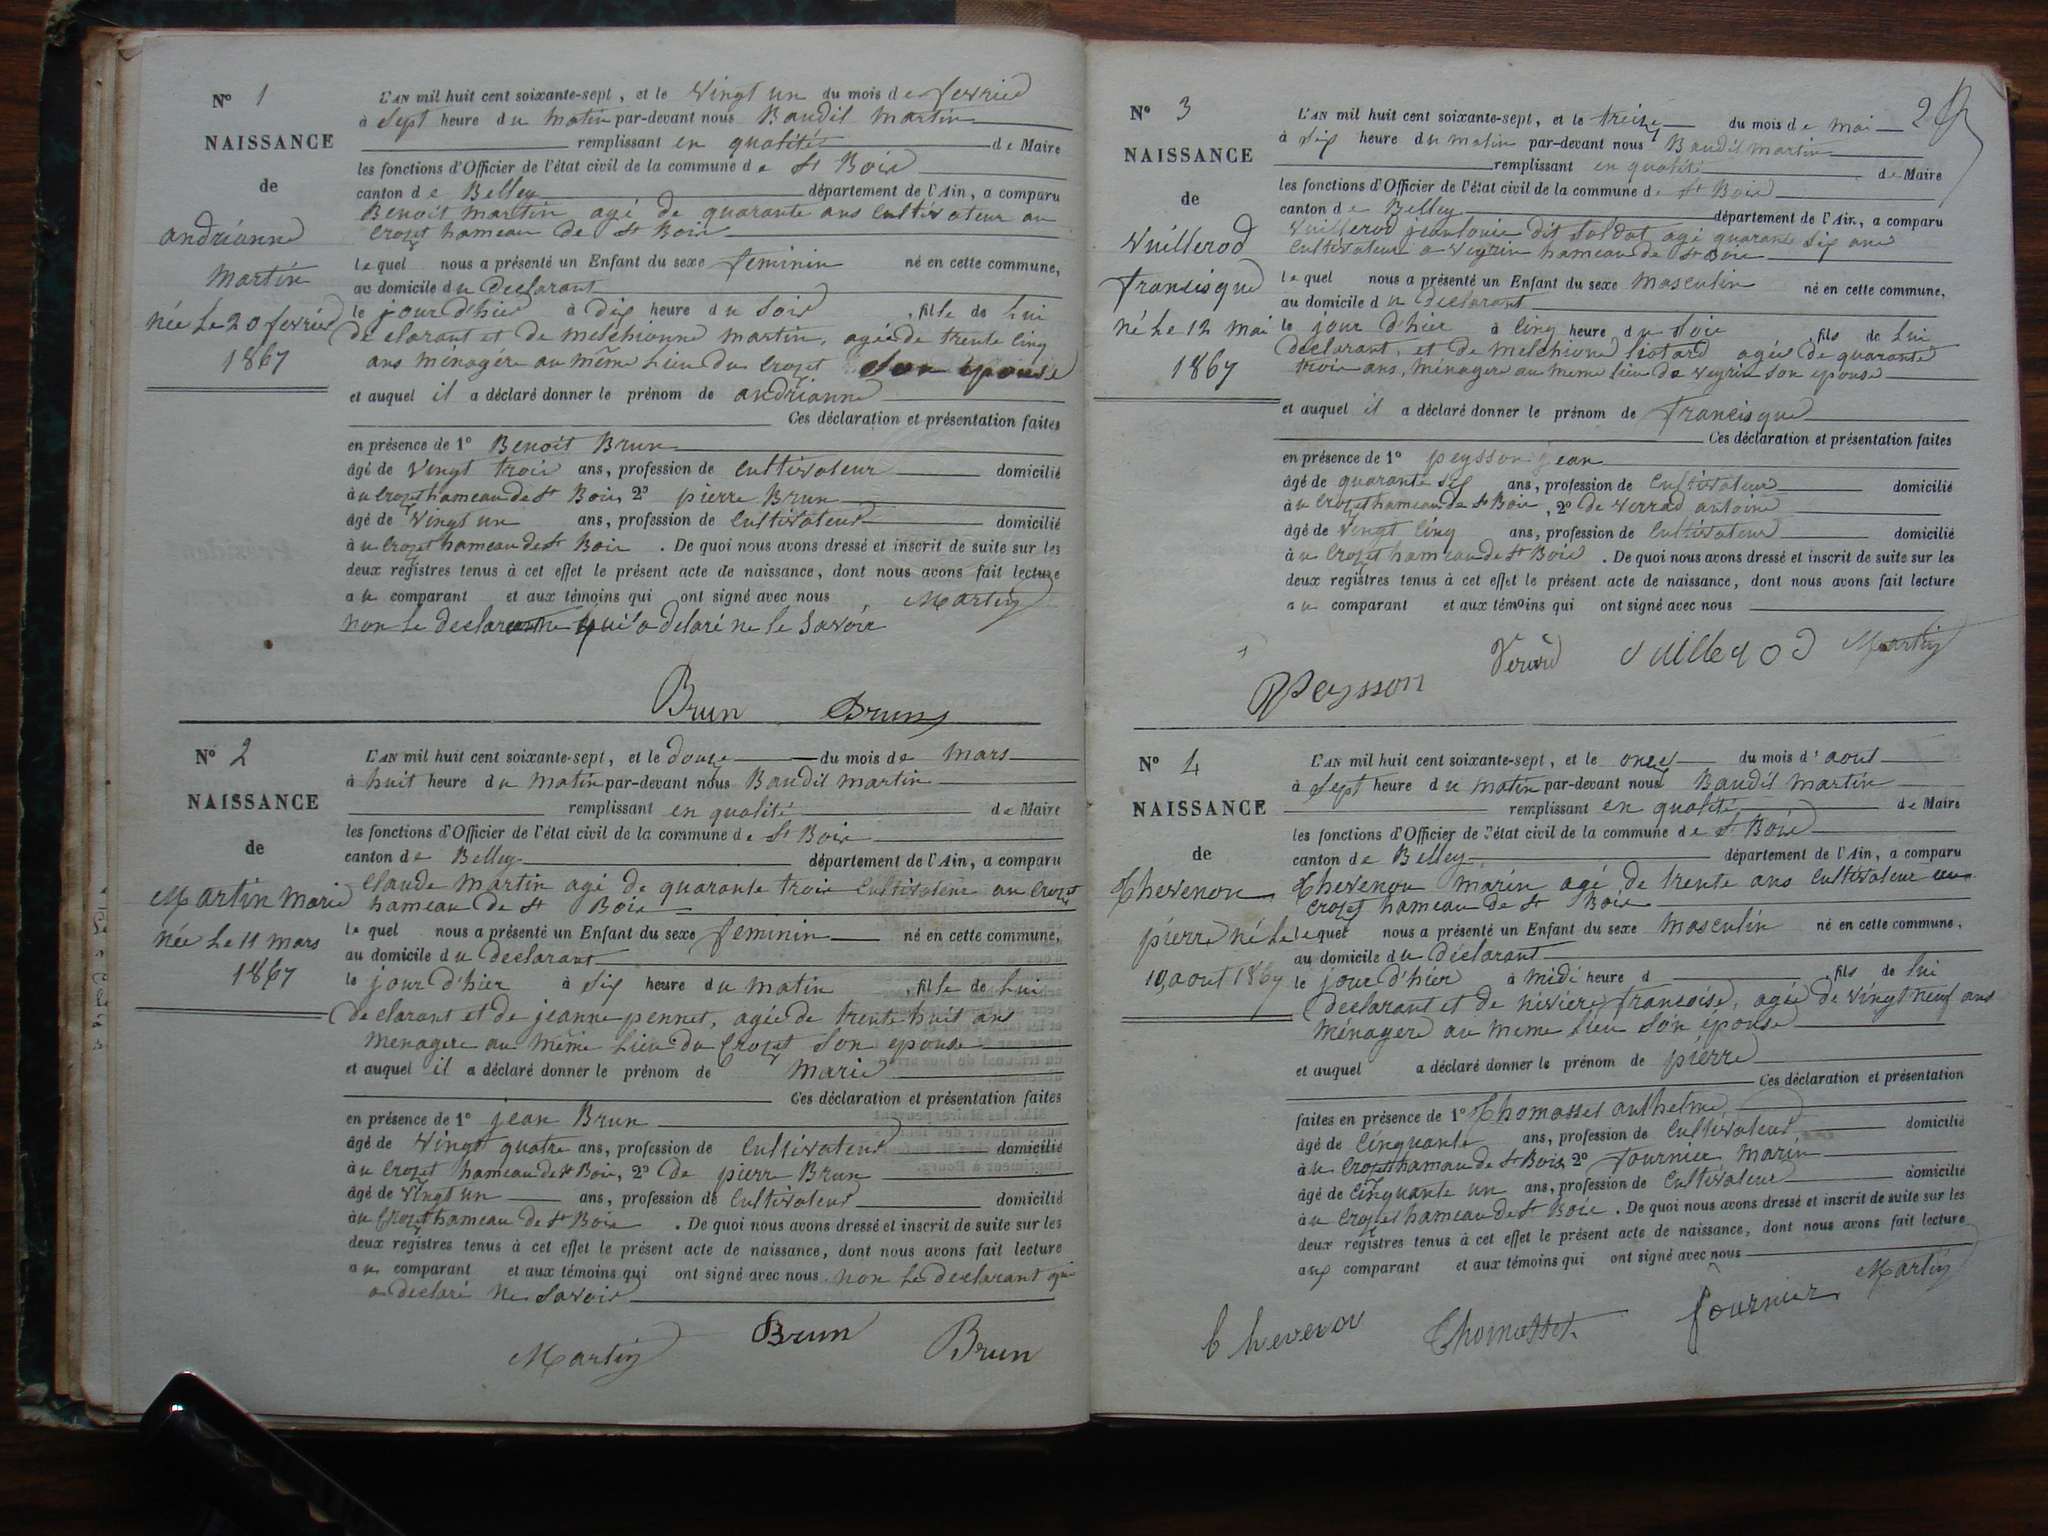 N° 1
NAISSANCE
de
andrianne
martin
née Le 20 fevrier
1867
L'AN mil huit cent soixante-sept, et le vingt un du mois de fevrier
à sept heure du matin par-devant nous Baudil martin
remplissant en qualité de Maire
les fonctions d'Officier de l'état civil de la commune de St Bois
canton de Belley département de l'Ain, a comparu
Benoit martin agé de quarante ans cultivateur au
crozet hameau de St Bois
lequel nous a présenté un Enfant du sexe feminin né en cette commune,
au domicile du declarant
le jour d'hier à dix heure du soir, fille de Lui
declarant et de melchionne martin, agée de trente cinq
ans ménagére au même Lieu du crozet son épouse
et auquel il a déclaré donner le prénom de andrianne
Ces déclaration et présentation faites
en présence de 1° Benoit Brun
âgé de vingt trois ans, profession de cultivateur domicilié
à u crozet hameau de St Bois, 2° pierre Brun
âgé de vingt un ans, profession de cultivateur domicilié
à u crozet hameau de St Bois. De quoi nous avons dressé et inscrit de suite sur les
deux registres tenus à cet effet le présent acte de naissance, dont nous avons fait lecture
au comparant et aux témoins qui ont signé avec nous Martin
non Le declarant qui a delaré ne le savoir
Brun Brun
N° 2
NAISSANCE
de
Martin marie
née Le 11 mars
1867
L'AN mil huit cent soixante-sept, et le douze du mois de mars
à huit heure du matin par-devant nous Baudil martin
remplissant en qualité de Maire
les fonctions d'Officier de l'état civil de la commune de St Bois
canton de Belley département de l'Ain, a comparu
claude martin agé de quarante trois cultivateur au crozet
hameau de St Bois
lequel nous a présenté un Enfant du sexe feminin né en cette commune,
au domicile du declarant
le jour d'hier à six heure du matin, fille de Lui
declarant et de jeanne pennet, agée de trente huit ans
menagere au même Lieu du Crozet son epouse
et auquel il a déclaré donner le prénom de marie
Ces déclaration et présentation faites
en présence de 1° jean Brun
âgé de vingt quatre ans, profession de cultivateur domicilié
à u crozet hameau de St Bois, 2° de pierre Brun
âgé de vingt un ans, profession de cultivateur domicilié
à u Crozet hameau de St Bois. De quoi nous avons dressé et inscrit de suite sur les
deux registres tenus à cet effet le présent acte de naissance, dont nous avons fait lecture
au comparant et aux témoins qui ont signé avec nous non Le declarant qui
a declaré ne savoir
Martin Brun Brun
2
N° 3
NAISSANCE
de
Vuillerod
francisque
né Le 12 mai
1867
L'AN mil huit cent soixante-sept, et le treize du mois de mai
à six heure du matin par-devant nous Baudil martin
remplissant en qualité de Maire
les fonctions d'Officier de l'état civil de la commune de St Bois
canton de Belley département de l'Ain, a comparu
Vuillerod jean louis dit soldat agé quarante six ans
cultivateur a veyrin hameau de St Bois
lequel nous a présenté un Enfant du sexe masculin né en cette commune,
au domicile du declarant
le jour d'hier à cinq heure du soir fils de lui
declarant, et de melchione liotard agée de quarante
trois ans, ménagere au meme lieu de veyrin son epouse
et auquel il a déclaré donner le prénom de francisque
Ces déclaration et présentation faites
en présence de 1° peysson jean
âgé de quarante six ans, profession de cultivateur domicilié
à u crozet hameau de St Bois, 2° de verrad antoine
âgé de vingt cinq ans, profession de cultivateur domicilié
à u Crozet hameau de St Bois. De quoi nous avons dressé et inscrit de suite sur les
deux registres tenus à cet effet le présent acte de naissance, dont nous avons fait lecture
au comparant et aux témoins qui ont signé avec nous
Peysson Verard vuillerod Martin
N° 4
NAISSANCE
de
Thevenon
pierre né Le
10 aout 1867
L'AN mil huit cent soixante-sept, et le onze du mois d'aout
à sept heure du matin par-devant nous Baudil martin
remplissant en qualité de Maire
les fonctions d'Officier de l'état civil de la commune de St Bois
canton de Belley département de l'Ain, a comparu
Thevenon marin agé de trente ans cultivateur au
crozet hameau de St Bois
lequel nous a présenté un Enfant du sexe masculin né en cette commune,
au domicile du déclarant
le jour d'hier à midi heure d fils de lui
declarant et de riviere francoise, agée de vingt neuf ans
ménagere au meme Lieu son épouse
et auquel a déclaré donner le prénom de pierre
Ces déclaration et présentation
faites en présence de 1° Thomasset anthelme
âgé de cinquante ans, profession de cultivateur domicilié
à u Crozet hameau de St Bois 2° fournier marin
âgé de cinquante un ans, profession de cultivateur domicilié
à u Crozet hameau de St Bois. De quoi nous avons dressé et inscrit de suite sur les
deux registres tenus à cet effet le présent acte de naissance, dont nous avons fait lecture
aux comparant et aux témoins qui ont signé avec nous
Thevenon Thomasset fournier Martin